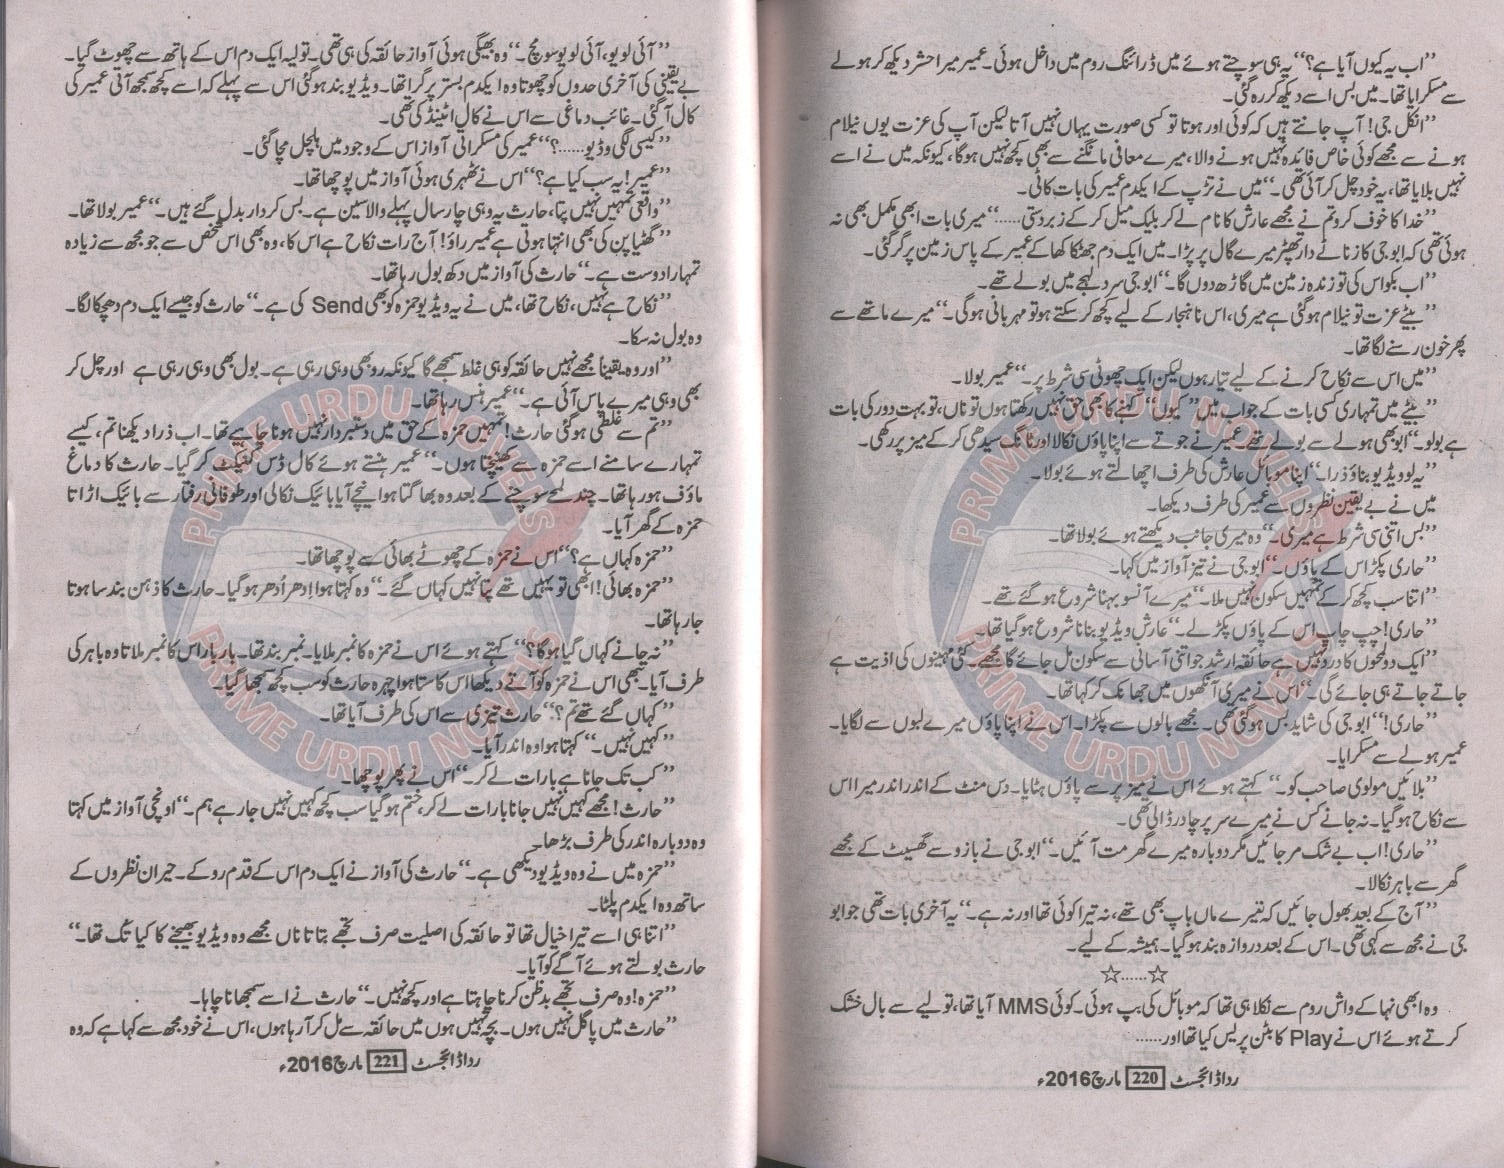 ’’اب یہ کیوں آیا ہے؟‘‘ یہ ہی سوچتے ہوئے میں ڈرائنگ روم میں داخل ہوئی۔ عمیر میرا حشر دیکھ کر ہولے
سے مسکرایا تھا۔ میں بس اسے دیکھ کر رہ گئی۔
’’انکل جی! آپ جانتے ہیں کہ کوئی اور ہوتا تو کسی صورت یہاں نہیں آتا لیکن آپ کی عزت یوں نیلام
ہونے سے مجھے کوئی خاص فائدہ نہیں ہونے والا، میرے معافی مانگنے سے بھی کچھ نہیں ہوگا، کیونکہ میں نے اسے
نہیں بلایا تھا، یہ خود چل کر آئی تھی۔‘‘ میں نے تڑپ کے ایکدم عمیر کی بات کاٹی۔
’’خدا کا خوف کرو تم نے مجھے عارش کا نام لے کر بلیک میل کر کے زبردستی......‘‘ میری بات ابھی مکمل بھی نہ
ہوئی تھی کہ ابو جی کا زناٹے دار تھپڑ میرے گال پر پڑا۔ میں ایک دم جھٹکا کھا کے عمیر کے پاس زمین پر گر گئی۔
’’اب بکواس کی تو زندہ زمین میں گاڑھ دوں گا۔‘‘ ابو جی سرد لہجے میں بولے تھے۔
’’بیٹے عزت تو نیلام ہوگئی ہے میری، اس ناہنجار کے لیے کچھ کر سکتے ہو تو مہربانی ہوگی۔‘‘ میرے ماتھے سے
پھر خون رسنے لگا تھا۔
’’میں اس سے نکاح کرنے کے لیے تیار ہوں لیکن ایک چھوٹی سی شرط پر۔‘‘ عمیر بولا۔
’’بیٹے میں تمہاری کسی بات کے جواب میں ’’کیوں‘‘ کہنے کا بھی حق نہیں رکھتا ہوں تو ناں، تو بہت دور کی بات
ہے بولو۔‘‘ ابو بھی ہولے سے بولے تھے۔ عمیر نے جوتے سے اپنا پاؤں نکالا اور ٹانگ سیدھی کر کے میز پر رکھی۔
’’یہ لو ویڈیو بناؤ ذرا۔‘‘ اپنا موبائل عارش کی طرف اچھالتے ہوئے بولا۔
میں نے بے یقین نظروں سے عمیر کی طرف دیکھا۔
’’بس اتنی سی شرط ہے میری۔‘‘ وہ میری جانب دیکھتے ہوئے بولا تھا۔
’’حاری پکڑ اس کے پاؤں۔‘‘ ابو جی نے تیز آواز میں کہا۔
’’اتنا سب کچھ کر کے تمہیں سکون نہیں ملا۔‘‘ میرے آنسو بہنا شروع ہو گئے تھے۔
’’حاری! چپ چاپ اس کے پاؤں پکڑ لے۔‘‘ عارش ویڈیو بنانا شروع ہو گیا تھا۔
’’ایک دو لمحوں کا درد نہیں ہے حائقہ ارشد جو اتنی آسانی سے سکون مل جائے گا مجھے۔ کئی مہینوں کی اذیت ہے
جاتے جاتے ہی جائے گی۔‘‘ اس نے میری آنکھوں میں جھانک کر کہا تھا۔
’’حاری!‘‘ ابو جی کی شاید بس ہوگئی تھی۔ مجھے بالوں سے پکڑا۔ اس نے اپنا پاؤں میرے لبوں سے لگایا۔
عمیر ہولے سے مسکرایا۔
’’بلائیں مولوی صاحب کو۔‘‘ کہتے ہوئے اس نے میز پر سے پاؤں ہٹایا۔ دس منٹ کے اندر اندر میرا اس
سے نکاح ہو گیا۔ نہ جانے کس نے میرے سر پر چادر ڈالی تھی۔
’’حاری! اب بے شک مر جائیں مگر دوبارہ میرے گھر مت آئیں۔‘‘ ابو جی نے بازو سے گھسیٹ کے مجھے
گھر سے باہر نکالا۔
’’آج کے بعد بھول جائیں کہ تیرے ماں باپ بھی تھے، نہ تیرا کوئی تھا اور نہ ہے۔‘‘ یہ آخری بات تھی جو ابو
جی نے مجھ سے کہی تھی۔ اس کے بعد دروازہ بند ہو گیا۔ ہمیشہ کے لیے۔
☆......☆
وہ ابھی نہا کے واش روم سے نکلا ہی تھا کہ موبائل کی بپ ہوئی۔ کوئی MMS آیا تھا، تولیے سے بال خشک
کرتے ہوئے اس نے Play کا بٹن پریس کیا تھا اور......
ردا ڈائجسٹ 220 مارچ 2016ء
’’آئی لو یو، آئی لو یو سو مچ۔‘‘ وہ بھیگی ہوئی آواز حائقہ کی ہی تھی۔ تولیہ ایک دم اس کے ہاتھ سے چھوٹ گیا۔
بے یقینی کی آخری حدوں کو چھوتا وہ ایکدم بستر پر گرا تھا۔ ویڈیو بند ہوگئی اس سے پہلے کہ اسے کچھ سمجھ آتی عمیر کی
کال آ گئی۔ غائب دماغی سے اس نے کال اٹینڈ کی تھی۔
’’کیسی لگی وڈیو......؟‘‘ عمیر کی مسکراتی آواز اس کے وجود میں ہلچل مچا گئی۔
’’عمیر! یہ سب کیا ہے؟‘‘ اس نے ٹھہری ہوئی آواز میں پوچھا تھا۔
’’واقعی تمہیں نہیں پتا، حارث یہ وہی چار سال پہلے والا سین ہے۔ بس کردار بدل گئے ہیں۔‘‘ عمیر بولا تھا۔
’’گھٹیا پن کی بھی انتہا ہوتی ہے عمیر راؤ! آج رات نکاح ہے اس کا، وہ بھی اس شخص سے جو مجھ سے زیادہ
تمہارا دوست ہے۔‘‘ حارث کی آواز میں دکھ بول رہا تھا۔
’’نکاح ہے نہیں، نکاح تھا، میں نے یہ ویڈیو حمزہ کو بھی Send کی ہے۔‘‘ حارث کو جیسے ایک دم دھچکا لگا۔
وہ بول نہ سکا۔
’’اور وہ یقیناً مجھے نہیں حائقہ کو ہی غلط سمجھے گا کیونکہ رو بھی وہی رہی ہے۔ بول بھی وہی رہی ہے اور چل کر
بھی وہی میرے پاس آئی ہے۔‘‘ عمیر ہنس رہا تھا۔
’’تم سے غلطی ہو گئی حارث! تمہیں حمزہ کے حق میں دستبردار نہیں ہونا چاہیے تھا۔ اب ذرا دیکھنا تم، کیسے
تمہارے سامنے اسے حمزہ سے کھینچتا ہوں۔‘‘ عمیر ہنستے ہوئے کال ڈس کنیکٹ کر گیا۔ حارث کا دماغ
ماؤف ہو رہا تھا۔ چند لمحے سوچنے کے بعد وہ بھاگتا ہوا نیچے آیا بائیک نکالی اور طوفانی رفتار سے بائیک اڑاتا
حمزہ کے گھر آیا۔
’’حمزہ کہاں ہے؟‘‘ اس نے حمزہ کے چھوٹے بھائی سے پوچھا تھا۔
’’حمزہ بھائی! ابھی تو یہیں تھے پتا نہیں کہاں گئے۔‘‘ وہ کہتا ہوا اِدھر اُدھر ہو گیا۔ حارث کا ذہن بند سا ہوتا
جا رہا تھا۔
’’نہ جانے کہاں گیا ہوگا؟‘‘ کہتے ہوئے اس نے حمزہ کا نمبر ملایا۔ نمبر بند تھا۔ بار بار اس کا نمبر ملاتا وہ باہر کی
طرف آیا۔ تبھی اس نے حمزہ کو آتے دیکھا اس کا ستا ہوا چہرہ حارث کو سب کچھ سمجھا گیا۔
’’کہاں گئے تھے تم؟‘‘ حارث تیزی سے اس کی طرف آیا تھا۔
’’کہیں نہیں۔‘‘ کہتا ہوا وہ اندر آیا۔
’’کب تک جانا ہے بارات لے کر۔‘‘ اس نے پھر پوچھا۔
’’حارث! مجھے کہیں نہیں جانا بارات لے کر، ختم ہو گیا سب کچھ کہیں نہیں جا رہے ہم۔‘‘ اونچی آواز میں کہتا
وہ دوبارہ اندر کی طرف بڑھا۔
’’حمزہ میں نے وہ ویڈیو دیکھی ہے۔‘‘ حارث کی آواز نے ایک دم اس کے قدم روکے۔ حیران نظروں کے
ساتھ وہ ایکدم پلٹا۔
’’اتنا ہی اسے تیرا خیال تھا تو حائقہ کی اصلیت صرف تجھے بتاتا ناں مجھے وہ ویڈیو بھیجنے کا کیا تک تھا۔‘‘
حارث بولتے ہوئے آگے کو آیا۔
’’حمزہ! وہ صرف تجھے بدظن کرنا چاہتا ہے اور کچھ نہیں۔‘‘ حارث نے اسے سمجھانا چاہا۔
’’حارث میں پاگل نہیں ہوں۔ بچہ نہیں ہوں میں حائقہ سے مل کر آ رہا ہوں، اس نے خود مجھ سے کہا ہے کہ وہ
ردا ڈائجسٹ 221 مارچ 2016ء
PRIME URDU NOVELS
PRIME URDU NOVELS
PRIME URDU NOVELS
PRIME URDU NOVELS